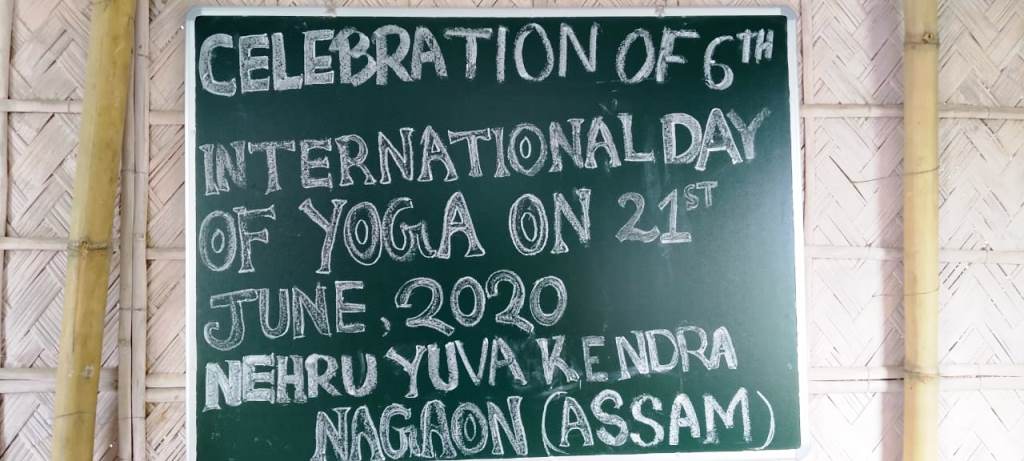 CELEBRATION OF 6TH
INTERNATIONAL DAY
OF YOGA ON 21ST
JUNE, 2020
NEHRU YUVA KENDRA
NAGAON (ASSAM)